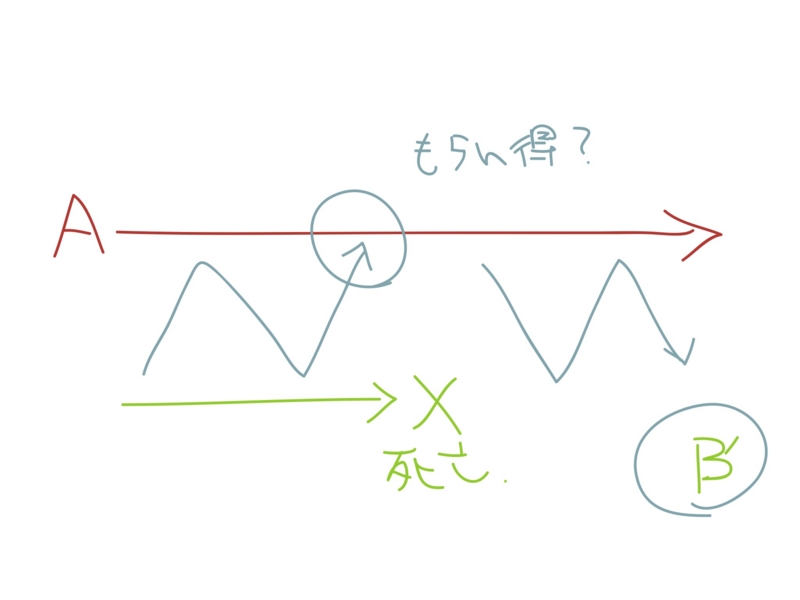 もらい得?
A
X
死亡.
B'